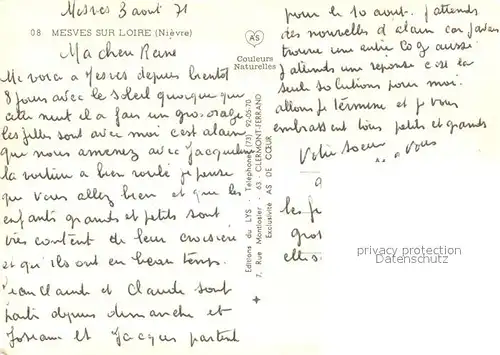 Mesves 3 aout 71
08 MESVES SUR LOIRE (Nièvre)
Ma chere Rene
Me voici a Mesves depuis bientot
8 jours avec le soleil quoique que
cette nuit il a fais un gros orage
les filles sont avec moi c'est alain
que nous amenez avec Jacqueline
la voiture a bien roulé je pense
que vous allez bien et que les
enfants grands et petits sont
très content de leur croisiere
et qu'ils ont eu beau temps.
Jean Claude et Claude sont
parti depuis dimanche et
Josiane et Jacques partent
AS
Couleurs
Naturelles
Editions du LYS - Téléphone (73) 92-05-70
7, Rue Montlosier - 63 - CLERMONT-FERRAND
Exclusivité AS DE CŒUR
pour le 10 aout. J'attends
des nouvelles d'alain car j'avais
trouve une autre aussi
J'attends une reponse c'est la
seule solutions pour moi.
allons je termine et je vous
embrassent tous petits et grands
Votre soeur
a vous
les
gros
elles
privacy protection
Datenschutz